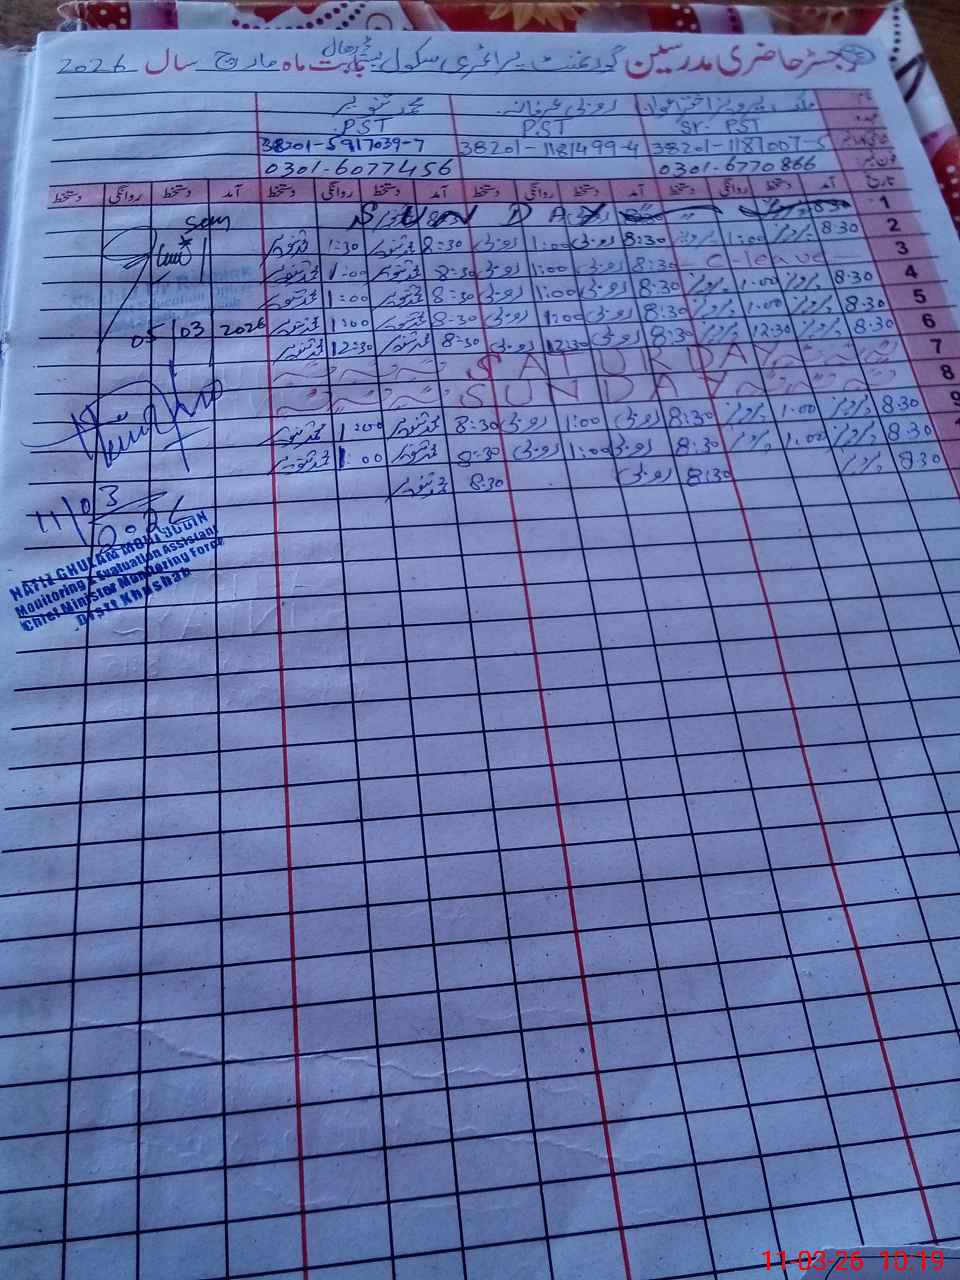 رجسٹر حاضری مدرسین گورنمنٹ پرائمری سکول بابت ماہ مارچ سال 2026
نام ملک پرویز اختر اعوان روبی عرفانہ محمد تنویر
عہدہ Sr. PST P.ST .PST
38201-1187007-5 38201-1181499-4 38201-5917039-7
فون نمبر 0301-6770866 0301-6077456
تاریخ آمد دستخط روانگی دستخط آمد دستخط روانگی دستخط آمد دستخط روانگی دستخط آمد دستخط روانگی دستخط
1 S U N D A Y
2 8:30 پرویز 1:00 پرویز 8:30 روبی 1:00 روبی 8:30 محمد تنویر 1:30 محمد تنویر
3 C-leave 8:30 روبی 1:00 روبی 8:30 محمد تنویر 1:00 محمد تنویر
4 8.30 پرویز 1.00 پرویز 8:30 روبی 1:00 روبی 8:30 محمد تنویر 1:00 محمد تنویر
5 8.30 پرویز 1.00 پرویز 8:30 روبی 1:00 روبی 8:30 محمد تنویر 1:00 محمد تنویر
6 8.30 پرویز 12.30 پرویز 8:30 روبی 12:30 روبی 8:30 محمد تنویر 12:30 محمد تنویر
7 SATURDAY
8 SUNDAY
9 8.30 پرویز 1.00 پرویز 8:30 روبی 1:00 روبی 8:30 محمد تنویر 1:00 محمد تنویر
8.30 پرویز 1.00 پرویز 8:30 روبی 1:00 روبی 8:30 محمد تنویر 1:00 محمد تنویر
8.30 پرویز 8:30 روبی 8.30 محمد تنویر
05/03 2026
11/03
2026
HAFIZ GHULAM MOHI UDDIN
Monitoring & Evaluation Assistant
Chief Minister Monitoring Force
Distt Khushab
11-03-26 10:19